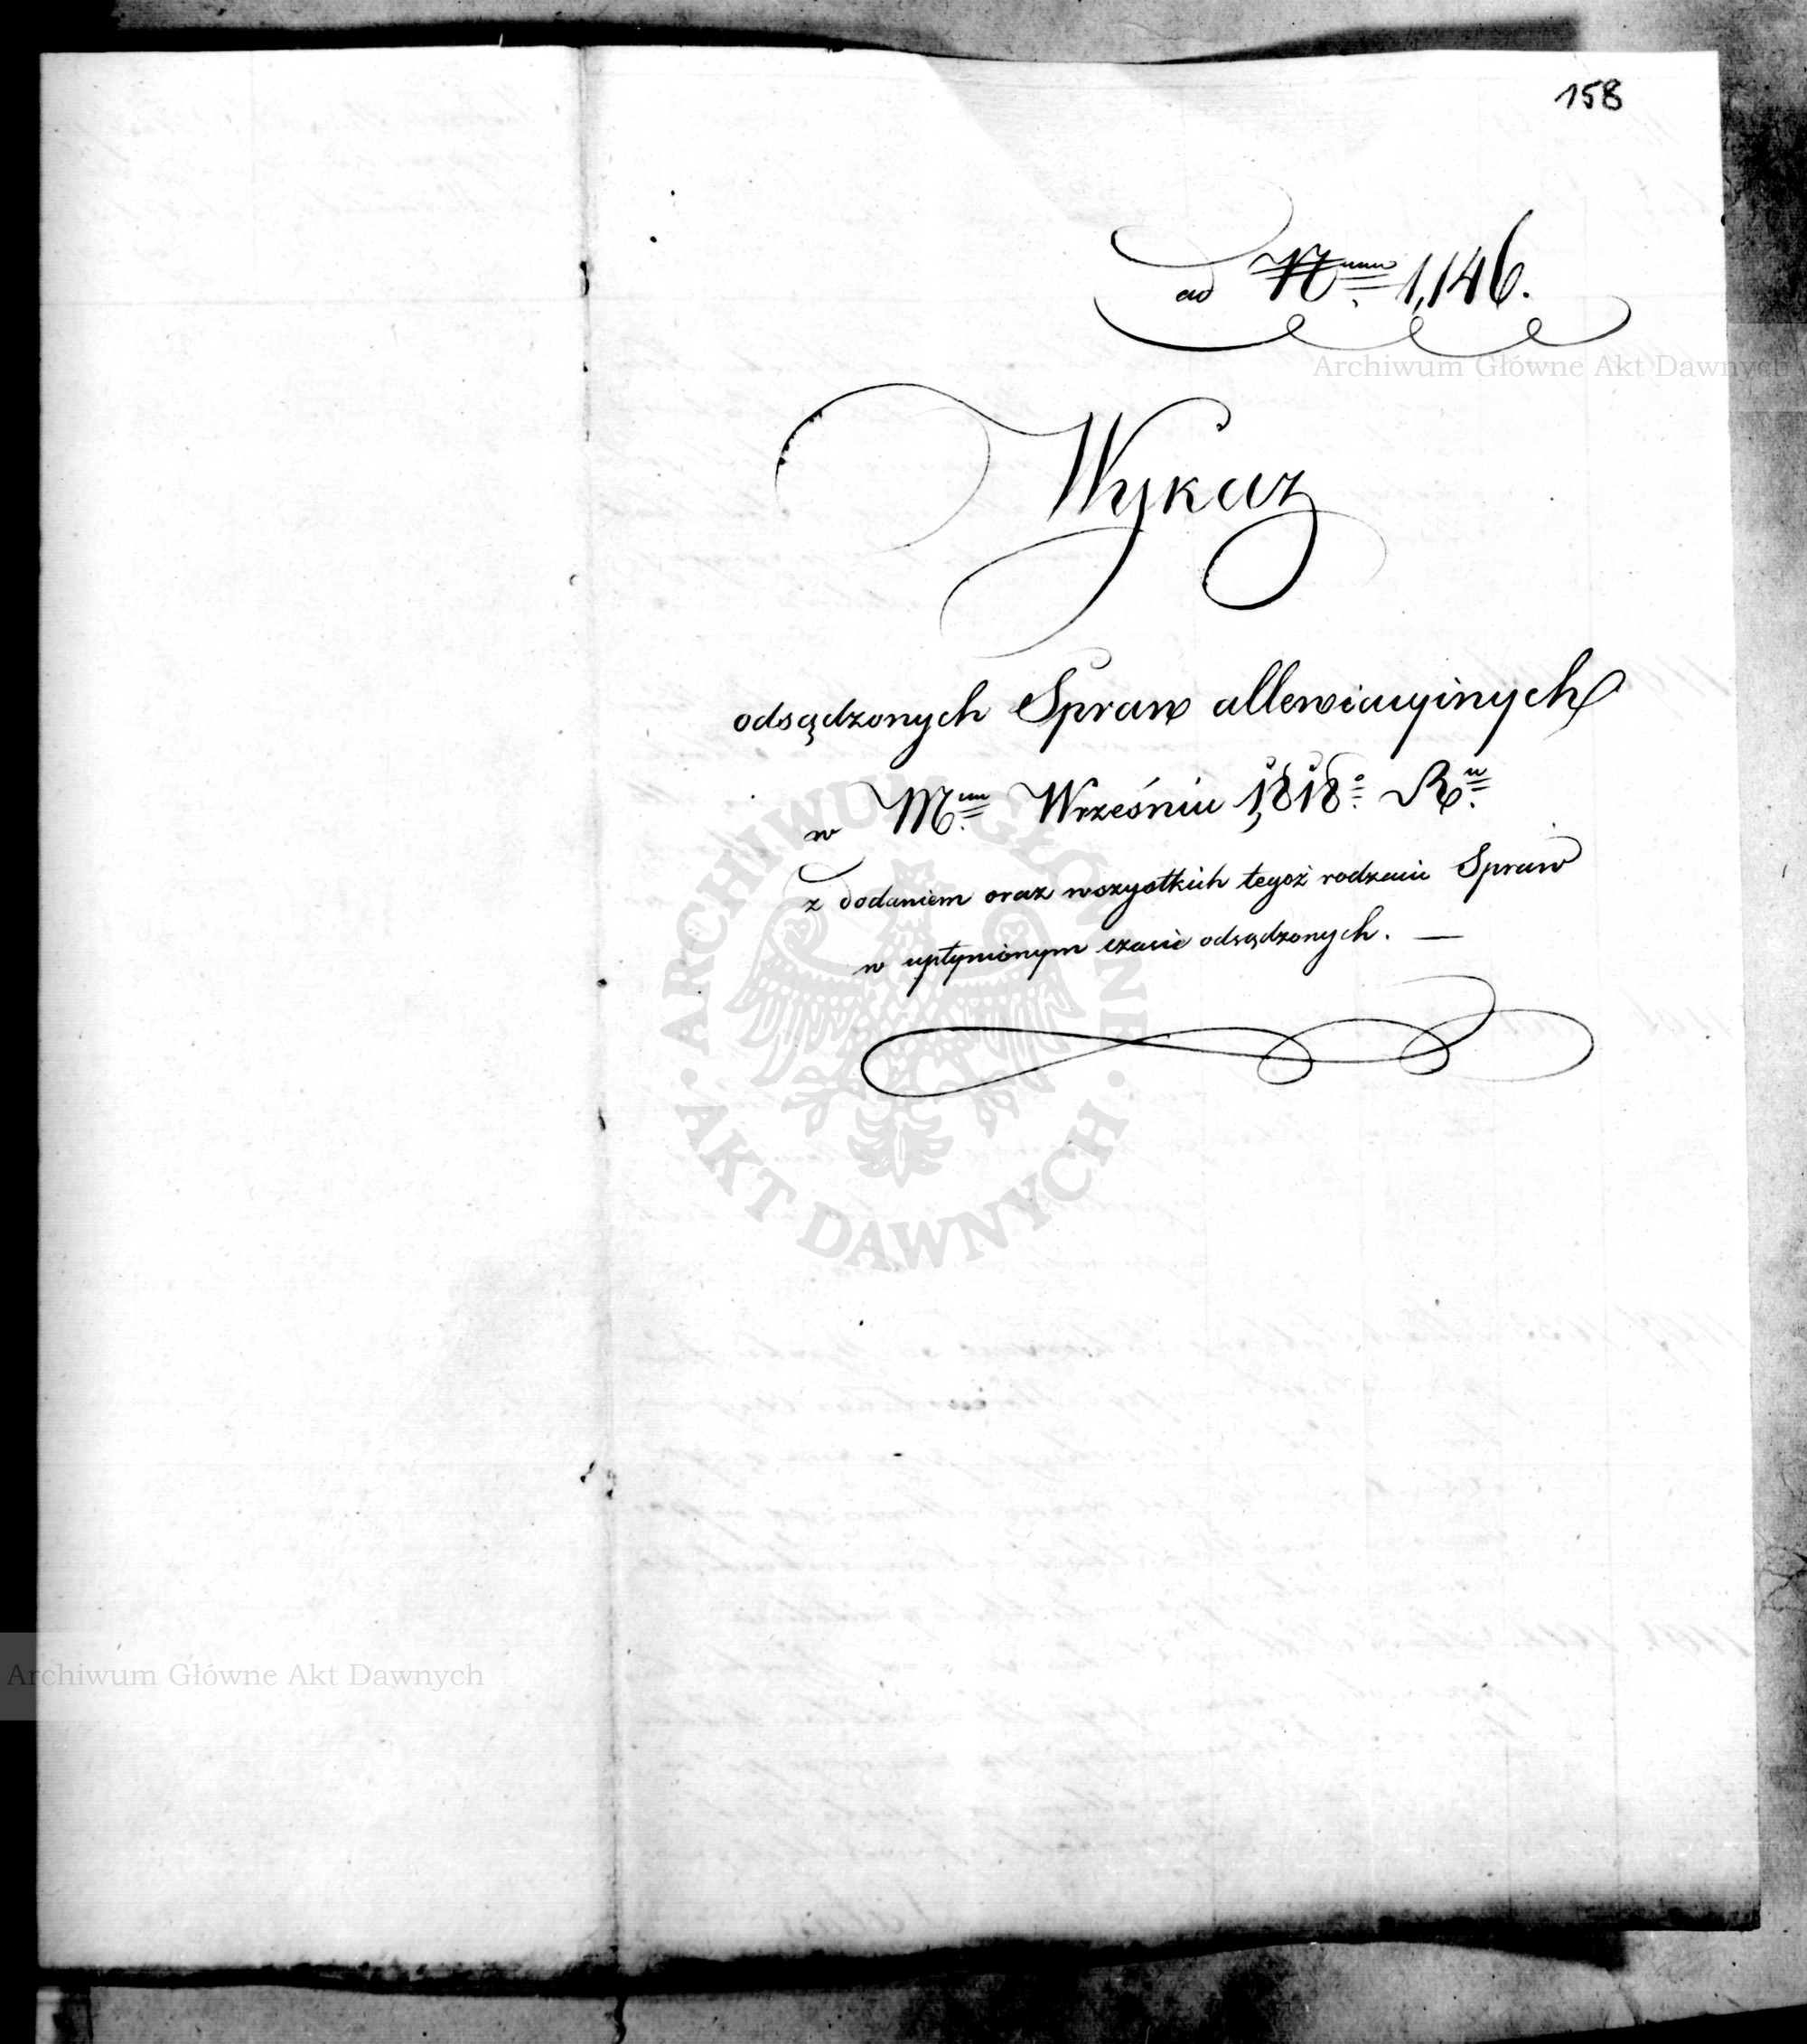 158
ad Nrum 1,146.
Archiwum Główne Akt Dawnych
Wykaz
odsądzonych Spraw allewiacyinych
w Mcu Wrześniu 1,818: Ru
z dodaniem oraz wszystkich tegoż rodzaiu Spraw
w upłynionym czasie odsądzonych. —
ARCHIWUM GŁÓWNE
AKT DAWNYCH
Archiwum Główne Akt Dawnych